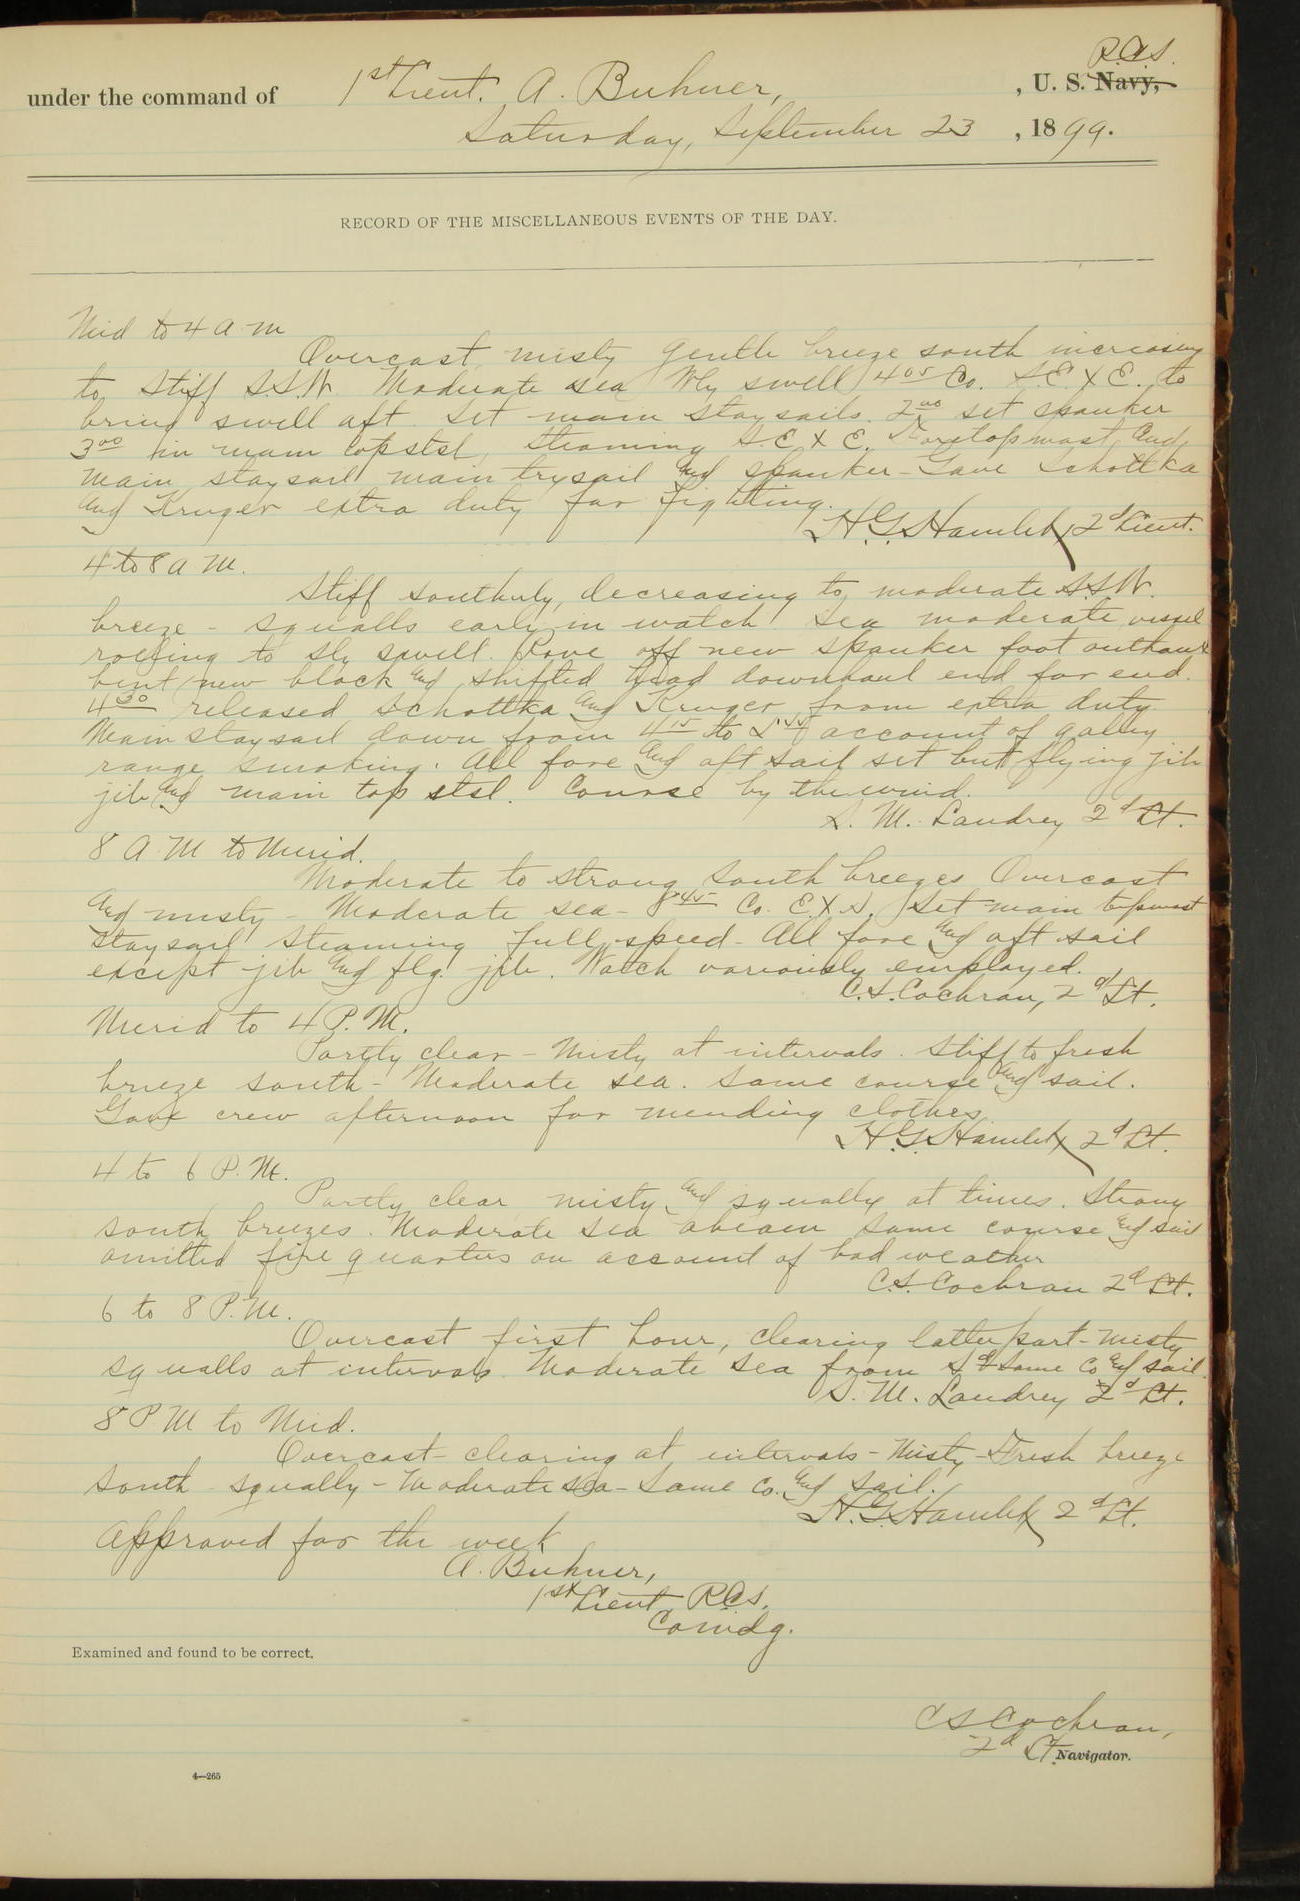 R.C.S.
under the command of 1st Lieut. A. Buhner, , U. S. Navy,
Saturday, September 23 , 1899.
RECORD OF THE MISCELLANEOUS EVENTS OF THE DAY.
Mid to 4 a m
Overcast, misty gentle breeze south increasing
to stiff S.S.W. Moderate sea Wly swell 4 05 Co. S.E. x E. to
bring swell aft. Set main stay sails. 2 00 set spanker
3 00 in main top stsl, steaming S.E x E. Foretopmast, and
main staysail main trysail and spanker - Gave Schottka
and Kruger extra duty for fighting.
H.G. Hamlet, 2d Lieut.
4 to 8 a m.
Stiff southerly, decreasing to moderate S.S.W.
breeze - squalls early in watch sea moderate vessel
rolling to sly swell. Rove off new spanker foot outhaul
bent new block and shifted head downhaul end for end.
4 30 released Schottka and Kruger from extra duty.
Main staysail down from 4 15 to account of galley
range smoking. All fore and aft sail set but flying jib
jib and main top stsl. Course by the wind.
S. M. Landrey 2d Lt.
8 A M to Merid.
Moderate to strong south breezes Overcast
and misty - Moderate sea - 8 45 Co. E x S. Set main topmast
staysail steaming full speed - All fore and aft sail
except jib and flg. jib. Watch variously employed.
C.S. Cochran, 2d Lt.
Merid to 4 P. M.
Partly clear - Misty at intervals. Stiff to fresh
breeze south - Moderate sea. Same course and sail.
Gave crew afternoon for mending clothes
H.G. Hamlet 2d Lt.
4 to 6 P. M.
Partly clear misty and squally at times. Strong
south breezes. Moderate sea abeam same course and sail
omitted fire quarters on account of bad weather
C.S. Cochran 2d Lt.
6 to 8 P. M.
Overcast first hour, clearing latter part - misty
squalls at intervals Moderate sea from Sd same Co and sail.
S. M. Landrey 2d Lt.
8 P M to Mid.
Overcast - clearing at intervals - Misty - Fresh breeze
south squally - Moderate sea - Same Co. and sail.
H.G. Hamlet 2d Lt.
Approved for the week
A. Buhner,
1st Lieut R.C.S.
Comdg.
Examined and found to be correct.
C S Cochran,
2d Lt. Navigator.
4—265